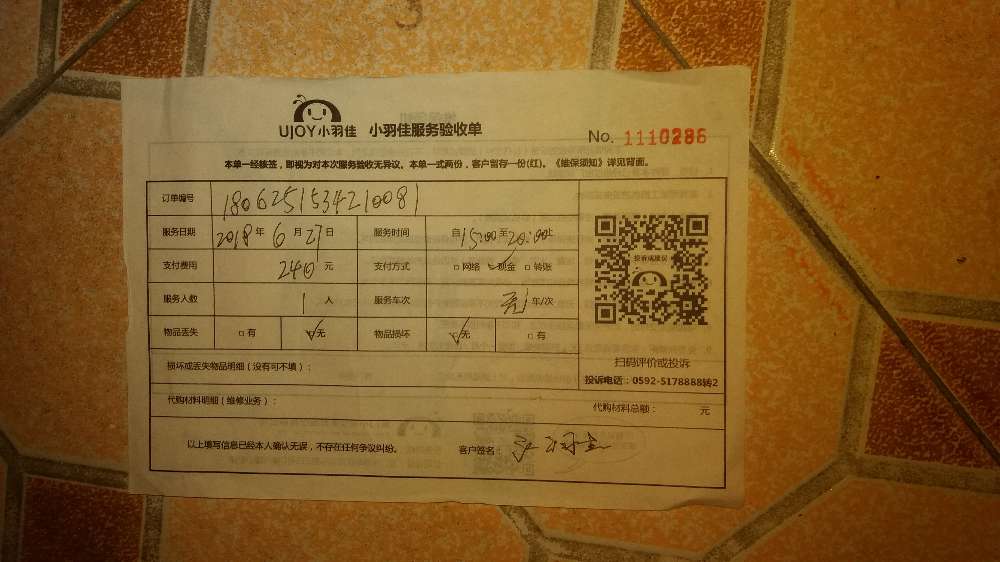 UJOY小羽佳 小羽佳服务验收单
No. 1110286
本单一经核签，即视为对本次服务验收无异议。本单一式两份，客户暂存一份(红)。《维保须知》详见背面。
订单编号 1806251534210081
服务日期 2018年6月27日 服务时间 自15:00至20:00止
支付费用 240元 支付方式 □网络 □现金 □转账
服务人数 1人 服务车次 车/次
物品丢失 □有 □无 物品损坏 □无 □有
投诉或建议
扫码评价或投诉
投诉电话：0592-5178888转2
损坏或丢失物品明细（没有可不填）：
代购材料明细（维修业务）： 代购材料总额： 元
以上填写信息已经本人确认无误，不存在任何争议纠纷。 客户签名：